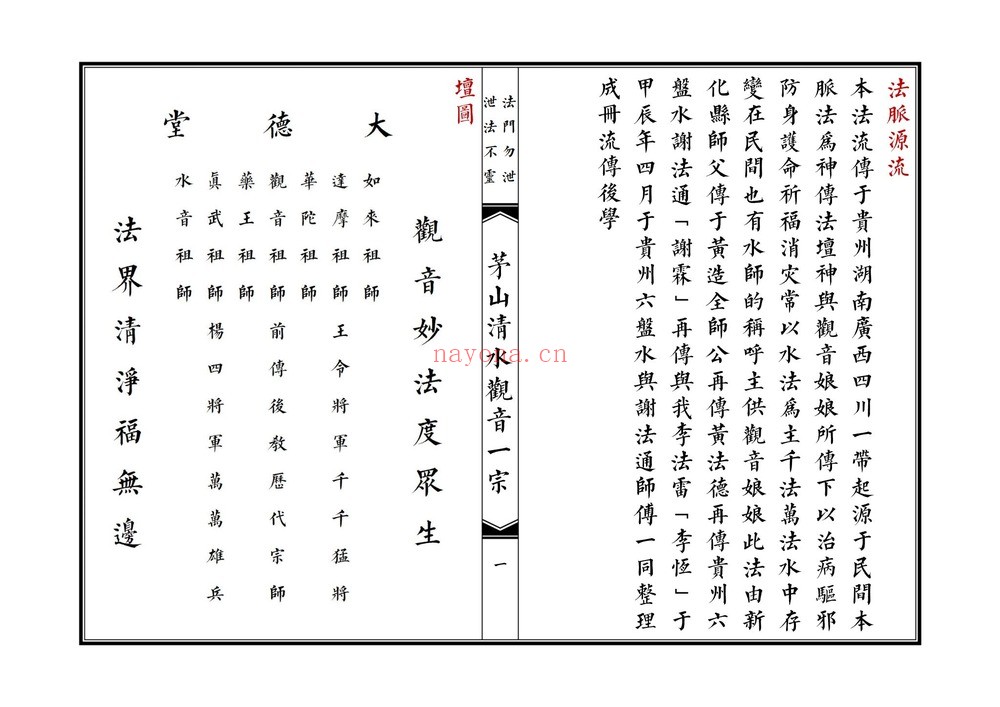 法脈源流
本法流傳于貴州湖南廣西四川一帶起源于民間本
脈法爲神傳法壇神與觀音娘娘所傳下以治病驅邪
防身護命祈福消灾常以水法爲主千法萬法水中存
變在民間也有水師的稱呼主供觀音娘娘此法由新
化縣師父傳于黃造全師公再傳黃法德再傳貴州六
盤水謝法通「謝霖」再傳與我李法雷「李恆」于
甲辰年四月于貴州六盤水與謝法通師傅一同整理
成冊流傳後學
法門勿泄
泄法不靈
茅山清水觀音一宗
一
壇圖
大德堂
觀音妙法度眾生
如來祖師
達摩祖師王令將軍千千猛將
華陀祖師
觀音祖師前傳後教歷代宗師
藥王祖師
眞武祖師楊四將軍萬萬雄兵
水音祖師
法界清淨福無邊
nayona.cn